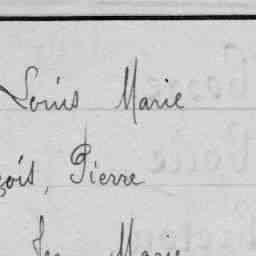 Louis Marie
çois, Pierre
Marie